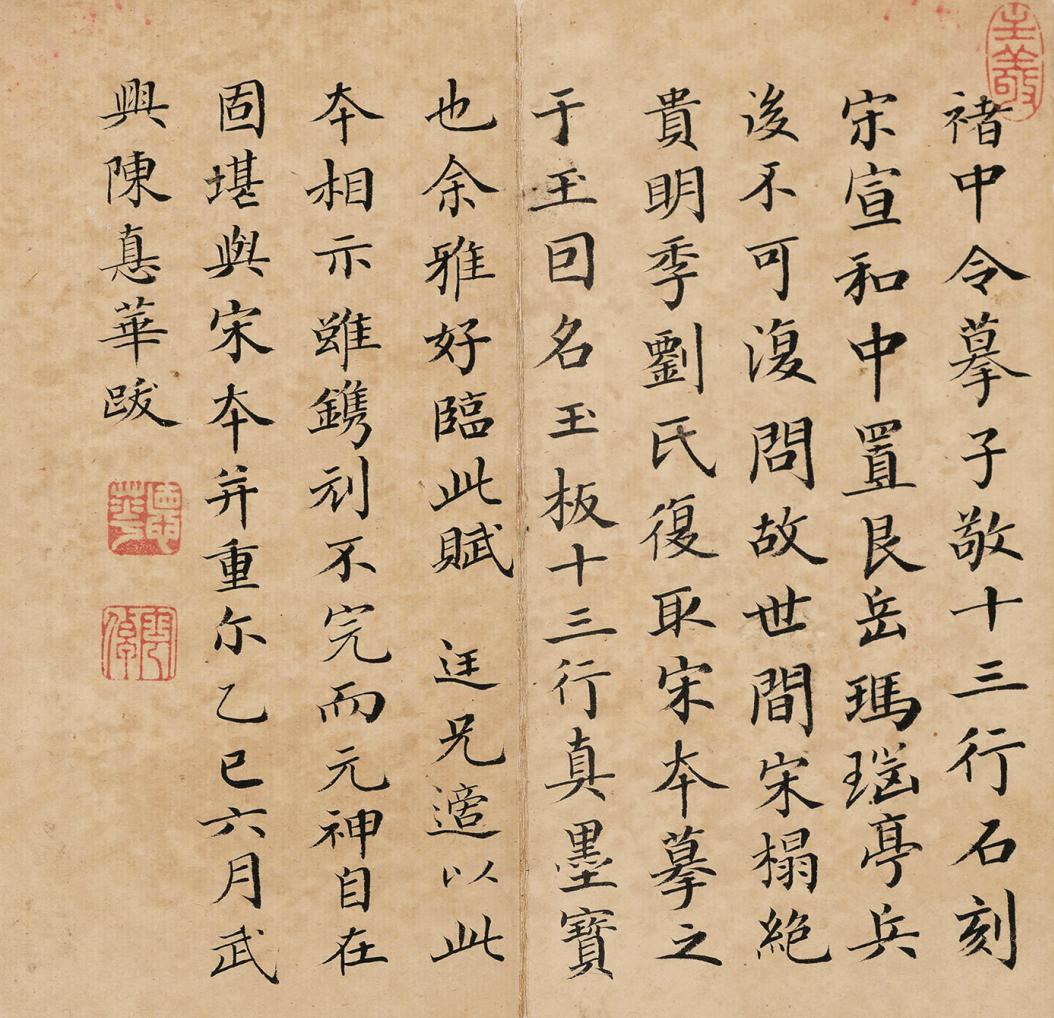 褚中令摹子敬十三行石刻
宋宣和中置艮岳瑪瑙亭兵
後不可復問故世間宋榻絕
貴明季劉氏復取宋本摹之
于玉回名玉板十三行真墨寶
也余雅好臨此賦 迋兄適以此
本相示雖鐫刻不完而元神自在
固堪與宋本并重尔乙巳六月武
興陳惪華跋